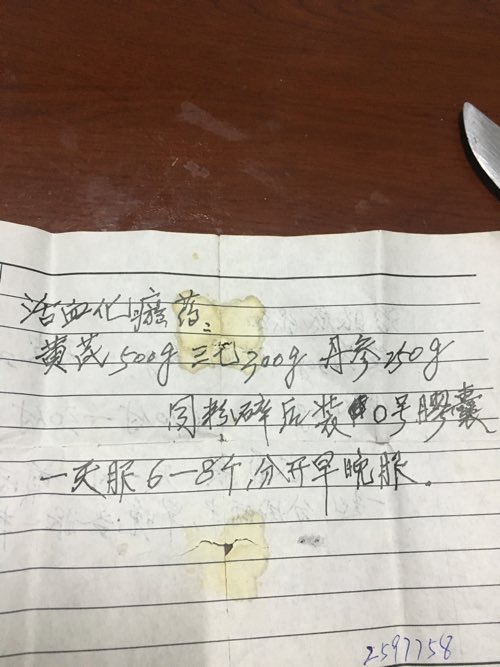 活血化瘀药：
黄芪1500g 三七300g 丹参250g
同粉碎后装0号膠囊
一天服6—8个,分开早晚服.
2597758